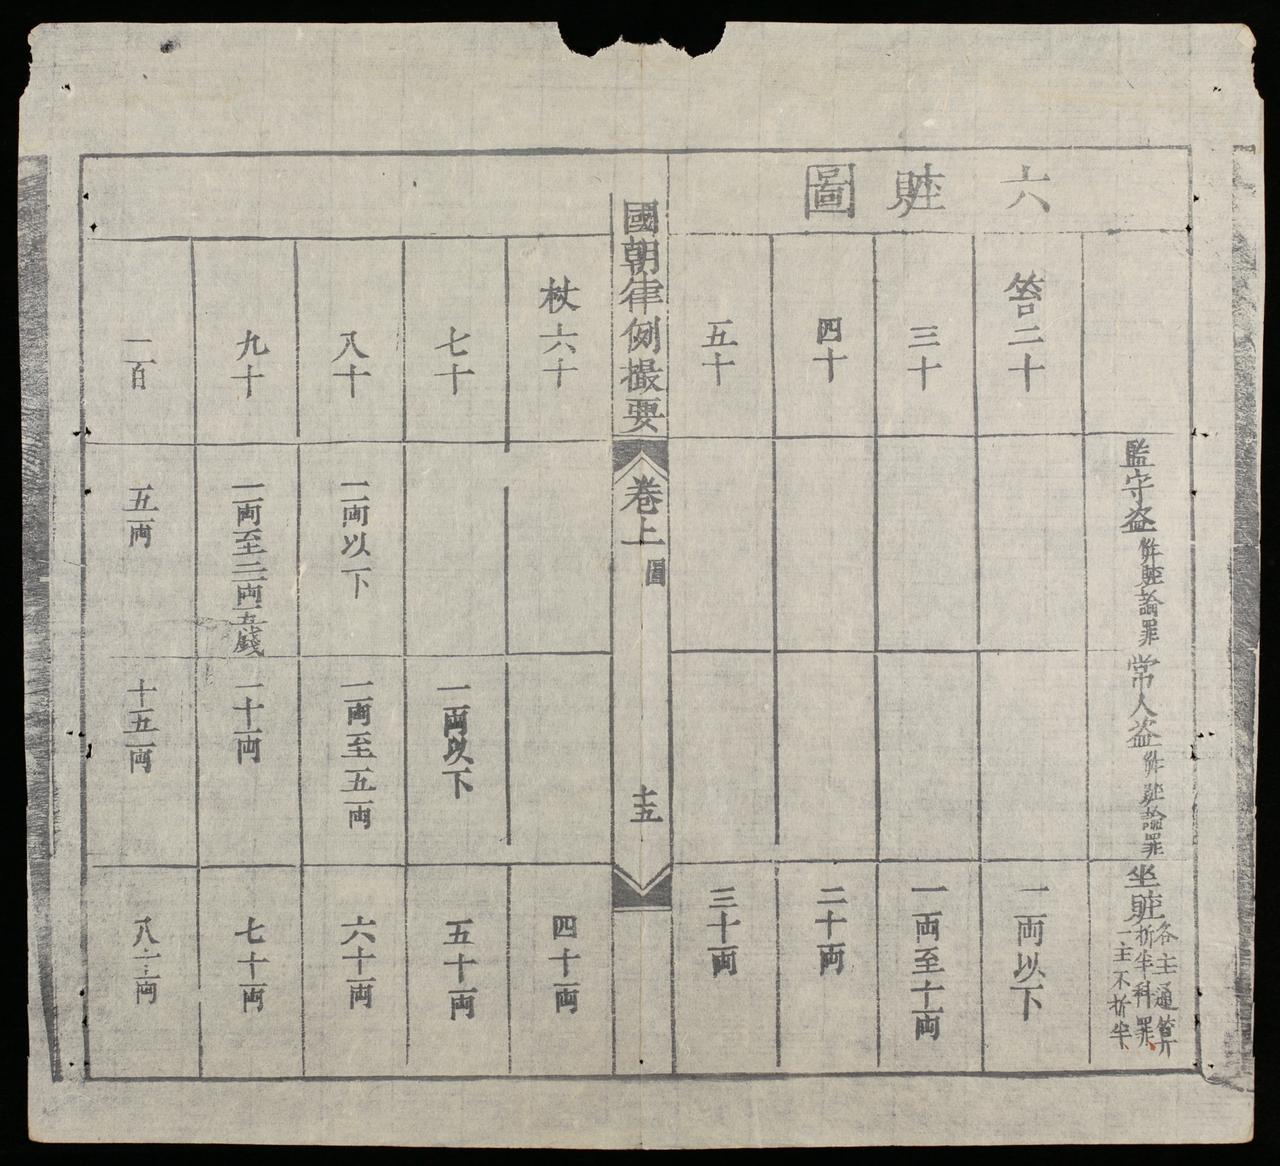 六賍圖
監守盗併賍論罪
常人盗併賍論罪
坐賍各主通算折半科罪一主不折半
笞二十
一両以下
三十
一両至十両
四十
二十両
五十
三十両
國朝律例撮要
卷上
圖
十五
杖六十
四十両
七十
一両以下
五十両
八十
一両以下
一両至五両
六十両
九十
一両至二両五錢
一十両
七十両
一百
五両
十五両
八十両